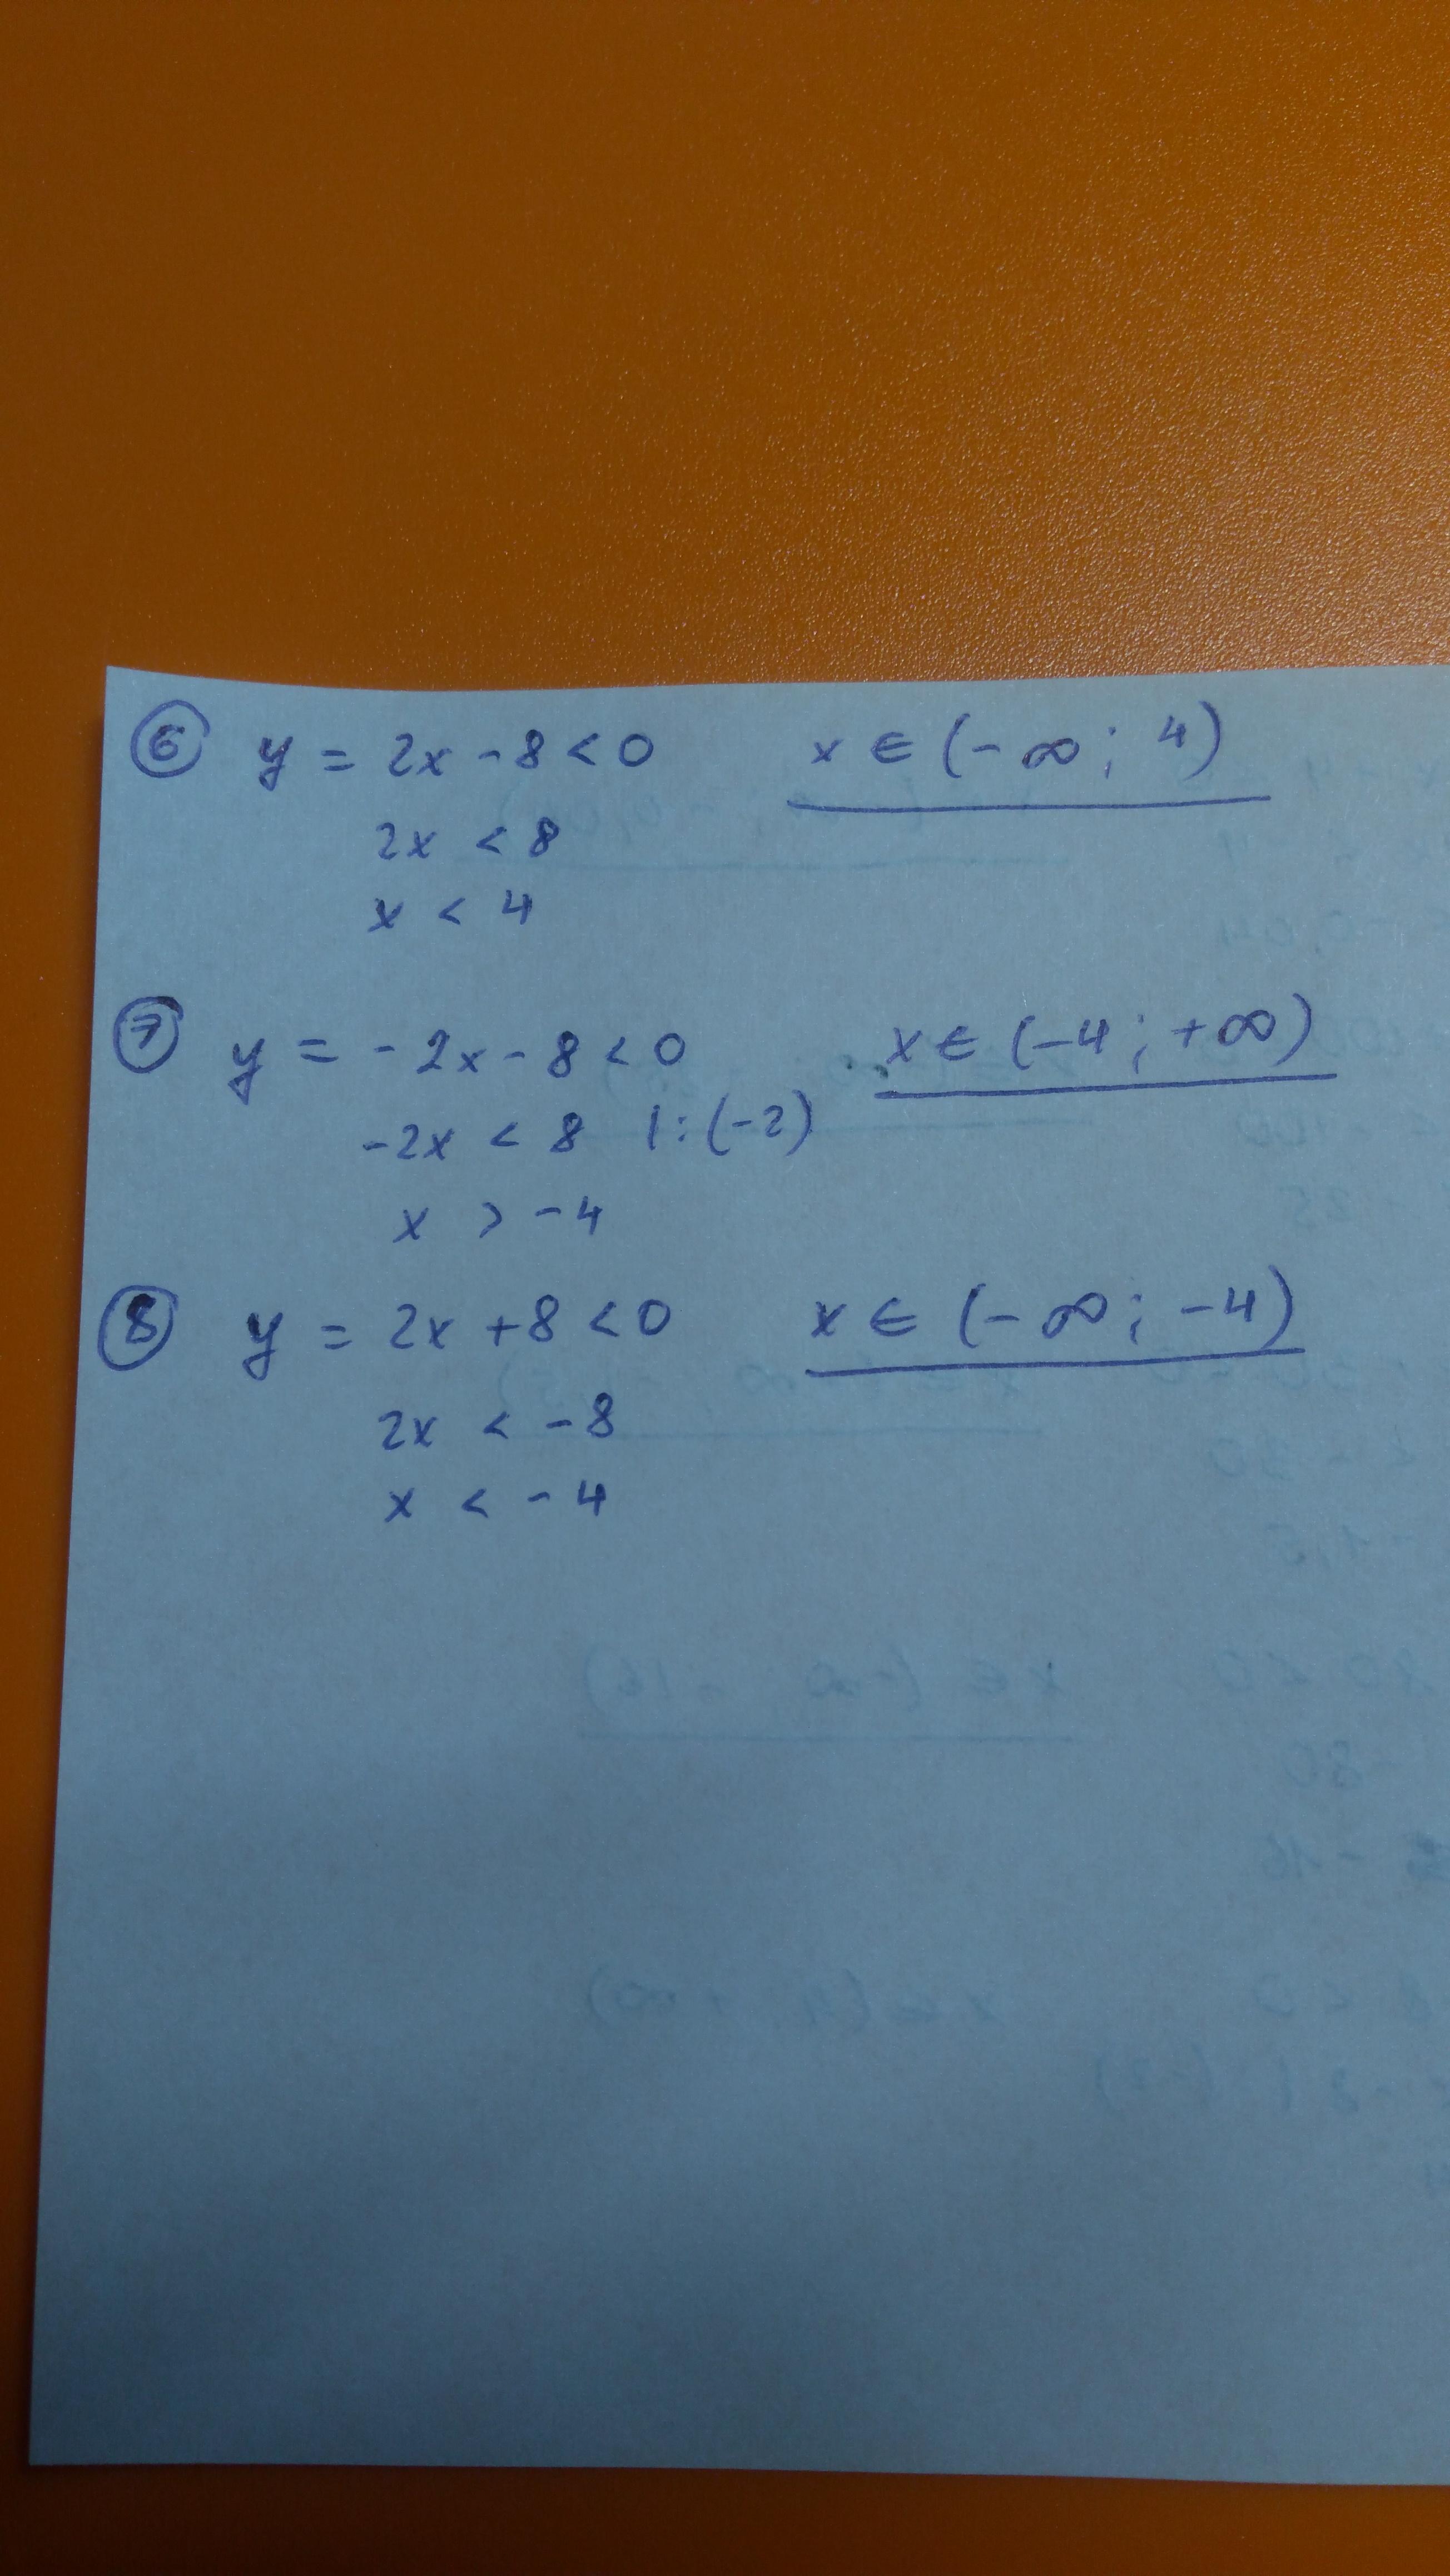 6 y = 2x - 8 < 0 x ∈ (-∞; 4)
2x < 8
x < 4
7 y = -2x - 8 < 0 x ∈ (-4; +∞)
-2x < 8 |:(-2)
x > -4
8 y = 2x + 8 < 0 x ∈ (-∞; -4)
2x < -8
x < -4